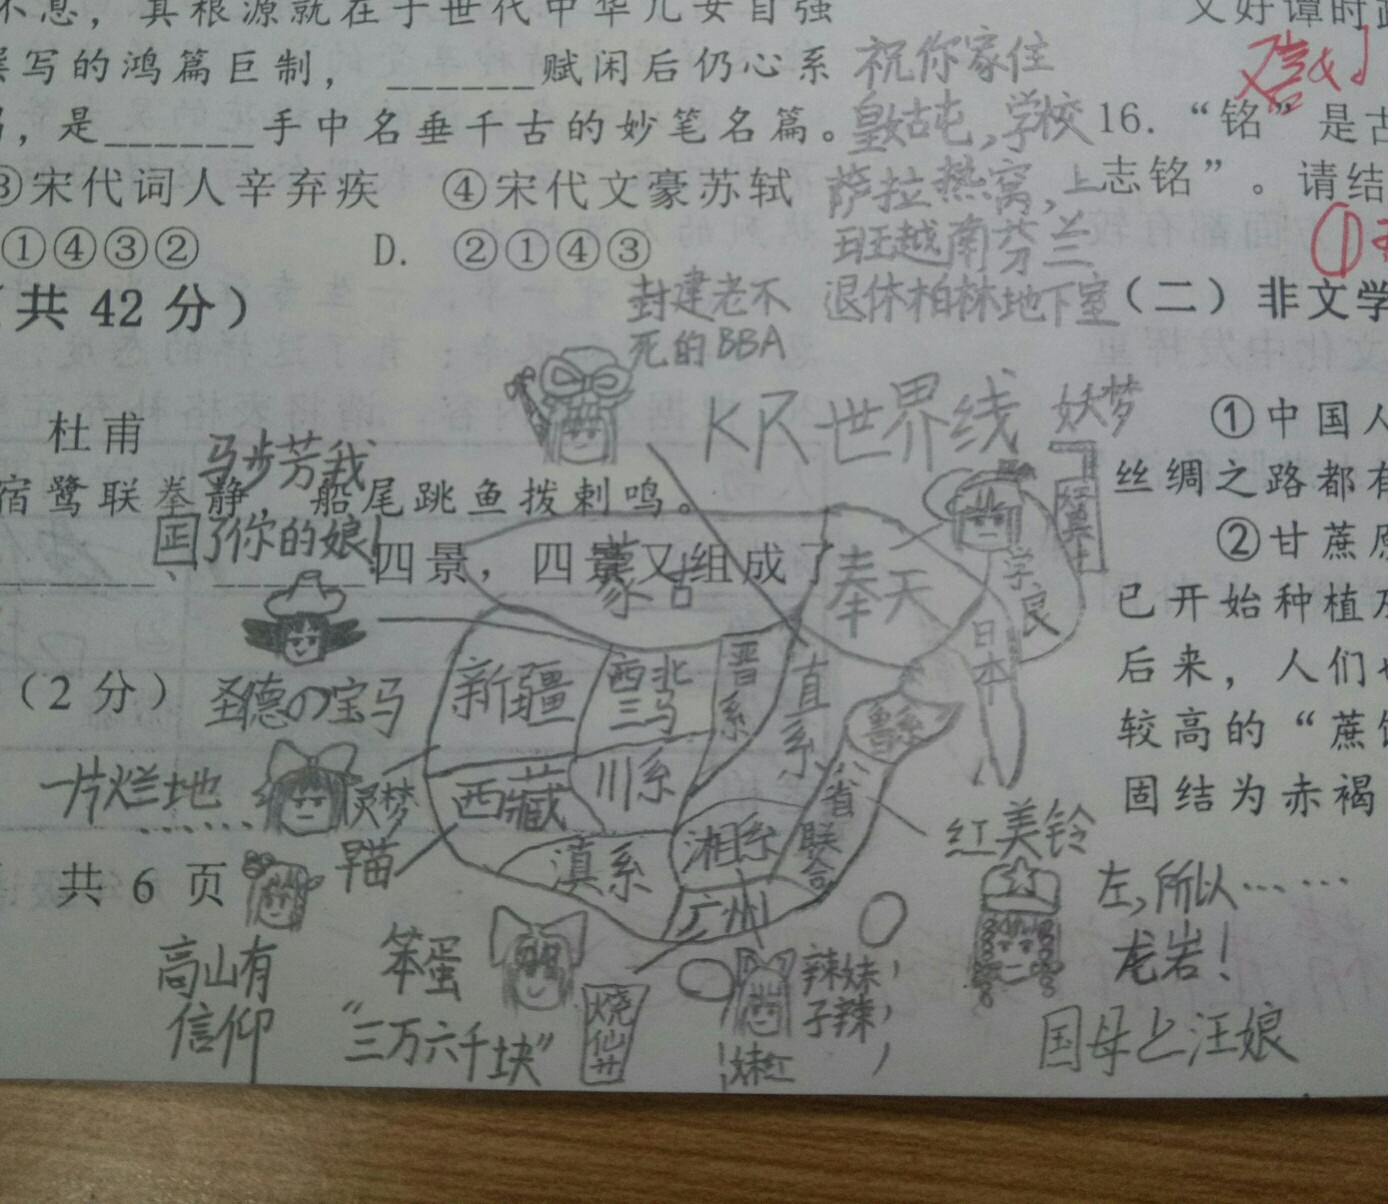 不息，其根源就在于世代中华儿女自强
写的鸿篇巨制，______赋闲后仍心系
，是______手中名垂千古的妙笔名篇。
③宋代词人辛弃疾 ④宋代文豪苏轼
①④③② D. ②①④③
共 42 分）
杜甫
宿鹭联拳静，船尾跳鱼拨剌鸣。
四景，四景又组成了
（2 分）
共 6 页
又好谭时
16. “铭”是古
志铭”。请结
①
（二）非文学
①中国人
丝绸之路都有
②甘蔗原
已开始种植及
后来，人们也
较高的“蔗
固结为赤褐
祝你家住
皇姑屯,学校
萨拉热窝,上
班越南芬兰
退休柏林地下室
封建老不
死的BBA
KR世界线
妖梦
学良
马步芳我
囸了你的娘!
圣德の宝马
一片烂地
……
灵梦
早苗
高山有
信仰
笨蛋
“三万六千块”
烧仙草
妹红
辣妹
子辣,
红美铃
左,所以……
龙岩!
国母と汪娘
蒙古
奉天
日本
新疆
西北三马
晋系
直系
鲁系
西藏
川系
八省联合
湘系
滇系
广州